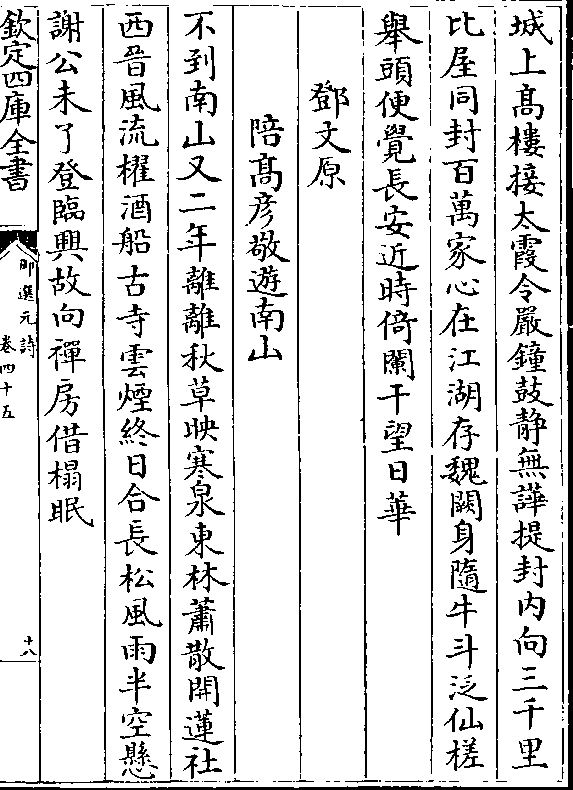 城上髙樓接太霞令嚴鐘鼓靜無譁提封内向三千里
比屋同封百萬家心在江湖存魏闕身隨牛斗泛仙槎
舉頭便覺長安近時倚闌干望日華
鄧文原
陪髙彦敬遊南山
不到南山又二年離離秋草映寒泉東林蕭散開蓮社
西晉風流櫂酒船古寺雲煙終日合長松風雨半空懸
謝公未了登臨興故向禪房借榻眠
欽定四庫全書
御選元詩
卷四十五
十八